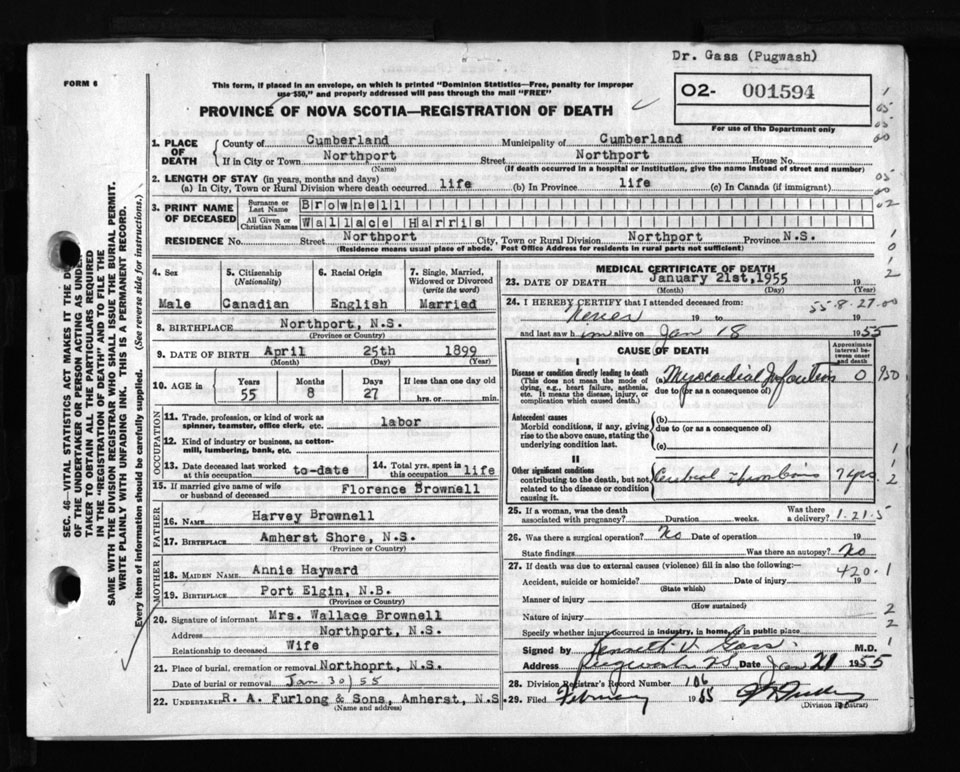 Dr. Gass (Pugwash)
FORM 6
This form, if placed in an envelope, on which is printed "Dominion Statistics—Free, penalty for improper
use $50," and properly addressed will pass through the mail "FREE"
PROVINCE OF NOVA SCOTIA—REGISTRATION OF DEATH
02- 001594
For use of the Department only
SEC. 46—VITAL STATISTICS ACT MAKES IT THE
OF THE UNDERTAKER OR PERSON ACTING AS UNDER-
TAKER TO OBTAIN ALL THE PARTICULARS REQUIRED
IN THE "REGISTRATION OF DEATH" AND TO FILE THE
SAME WITH THE DIVISION REGISTRAR WHO SHALL ISSUE THE BURIAL PERMIT.
WRITE PLAINLY WITH UNFADING INK. THIS IS A PERMANENT RECORD.
Every item of information should be carefully supplied. (See reverse side for instructions.)
1. PLACE OF DEATH
County of Cumberland Municipality of Cumberland
If in City or Town Northport Street Northport House No.
(Name) (If death occurred in a hospital or institution, give its name instead of street and number)
2. LENGTH OF STAY (in years, months and days)
(a) In City, Town or Rural Division where death occurred life (b) In Province life (c) In Canada (if immigrant)
3. PRINT NAME OF DECEASED
Surname or Last Name Brownell
All Given or Christian Names Wallace Harris
RESIDENCE No. Street Northport City, Town or Rural Division Northport Province N.S.
(Residence means usual place of abode. Post Office Address for residents in rural parts not sufficient)
4. Sex Male
5. Citizenship (Nationality) Canadian
6. Racial Origin English
7. Single, Married, Widowed or Divorced (write the word) Married
8. BIRTHPLACE Northport, N.S.
(Province or Country)
9. DATE OF BIRTH April 25th 1899
(Month) (Day) (Year)
10. AGE in Years 55 Months 8 Days 27 If less than one day old
hrs. or min.
OCCUPATION
11. Trade, profession, or kind of work as
spinner, teamster, office clerk, etc. labor
12. Kind of industry or business, as cotton-
mill, lumbering, bank, etc.
13. Date deceased last worked
at this occupation to-date
14. Total yrs. spent in
this occupation life
15. If married give name of wife
or husband of deceased Florence Brownell
FATHER
16. NAME Harvey Brownell
17. BIRTHPLACE Amherst Shore, N.S.
(Province or Country)
MOTHER
18. MAIDEN NAME Annie Hayward
19. BIRTHPLACE Port Elgin, N.B.
(Province or Country)
20. Signature of informant Mrs. Wallace Brownell
Address Northport, N.S.
Relationship to deceased Wife
21. Place of burial, cremation or removal Northoprt, N.S.
Date of burial or removal Jan 30/55
22. UNDERTAKER R. A. Furlong & Sons, Amherst, N.S
(Name and address)
MEDICAL CERTIFICATE OF DEATH
23. DATE OF DEATH January 21st, 1955 19
(Month) (Day) (Year)
55-8-27-00
24. I HEREBY CERTIFY that I attended deceased from:
Never 19 to 19
and last saw him alive on Jan 18 1955
CAUSE OF DEATH
Approximate interval between onset and death
I
Disease or condition directly leading to death
(This does not mean the mode of
dying, e.g., heart failure, asthenia,
etc. It means the disease, injury, or
complication which caused death.)
(a) Myocardial Infarction 0
due to (or as a consequence of)
Antecedent causes
Morbid conditions, if any, giving
rise to the above cause, stating the
underlying condition last.
(b)
due to (or as a consequence of)
(c)
II
Other significant conditions
contributing to the death, but not
related to the disease or condition
causing it.
Cerebral Thrombosis 7 yrs.
25. If a woman, was the death
associated with pregnancy? Duration weeks. Was there
a delivery? 1-21-5
26. Was there a surgical operation? No Date of operation 19
State findings Was there an autopsy? No
27. If death was due to external causes (violence) fill in also the following:—
420.1
Accident, suicide or homicide? Date of injury 19
(State which)
Manner of injury
(How sustained)
Nature of injury
Specify whether injury occurred in industry, in home, or in public place
Signed by Kenneth V. Gass. M.D.
Address Pugwash NS, Date Jan 21 1955
28. Division Registrar's Record Number 106
29. Filed February 1955
(Division Registrar)